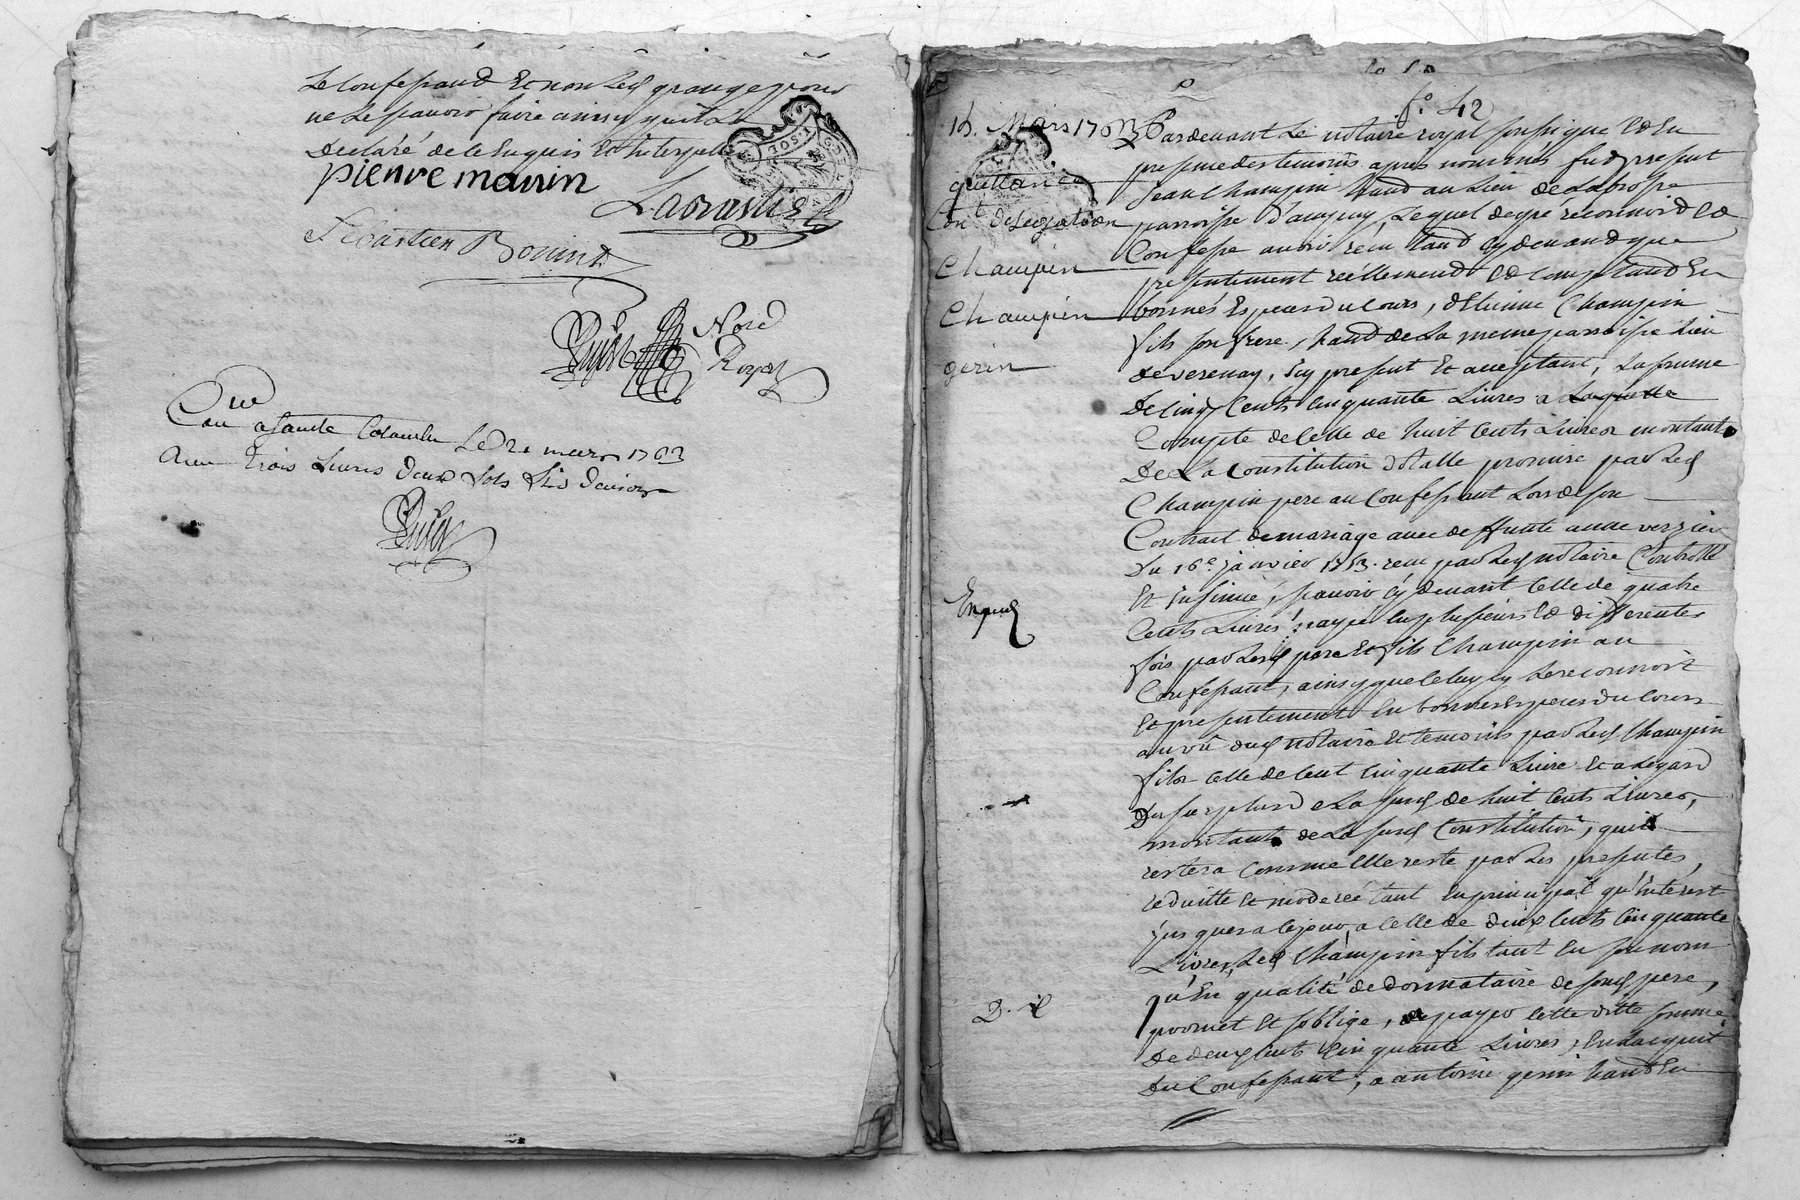 Le confessant et non led grange pour
ne le sçavoir faire ainsy qu'il a
declaré de ce enquis et interpellé
pierre marrin
Sebastien Bovint
Royal
Con̅lé a sainte Colombe le 21 mars 1763
Reçu trois livres deux sols six deniers
fo. 42
15. Mars 1763
quittance
Champin
Champin
gerin
Pardevant Le notaire royal soussigné et en
presence des temoins apres nommés fut present
Jean Champin habitt au Lieu de Labrosse
parroisse d'ampuy, Lequel de gré reconnoit et
Confesse avoir recu tant cy devant que
presentement reellement et comptant en
bonnes especes du cours, d'Etienne Champin
fils son frere, habitt de La meme parroisse Lieu
de verenay, icy present et acceptant, La somme
De cinq Cents cinquante Livres a
Compte de Celle de huit Cents Livres montant
De La Constitution dotalle promise par Led
Champin pere au Confessant Lors de son
Contrat de mariage avec deffunte anne verzier
Du 16e. janvier 1753. recu par Led notaire Controllé
Et insinué, sçavoir cy devant Celle de quatre
Cents Livres payée en plusieurs et differentes
fois par Lesd pere et fils Champin au
Confessant, ainsy que celuy cy Le reconnoit
Et presentement en bonnes especes du Cours
au vû dud notaire et temoins par Led Champin
fils Celle de Cent Cinquante Livre et a l'egard
Du surplus de La susd de huit Cents Livres,
montant de La susd Constitution, qui
restera Comme elle reste par Les presentes,
reduitte et moderée tant en principal qu'interest
jusques a ce jour, a Celle de deux Cents Cinquante
Livres, Led Champin fils tant en son nom
qu'En qualité de donnataire de sond pere,
promet et s'oblige, de payer Cette ditte somme
De deux Cents Cinquante Livres, en L'acquit
Du Confessant, a antoine gerin habitt en